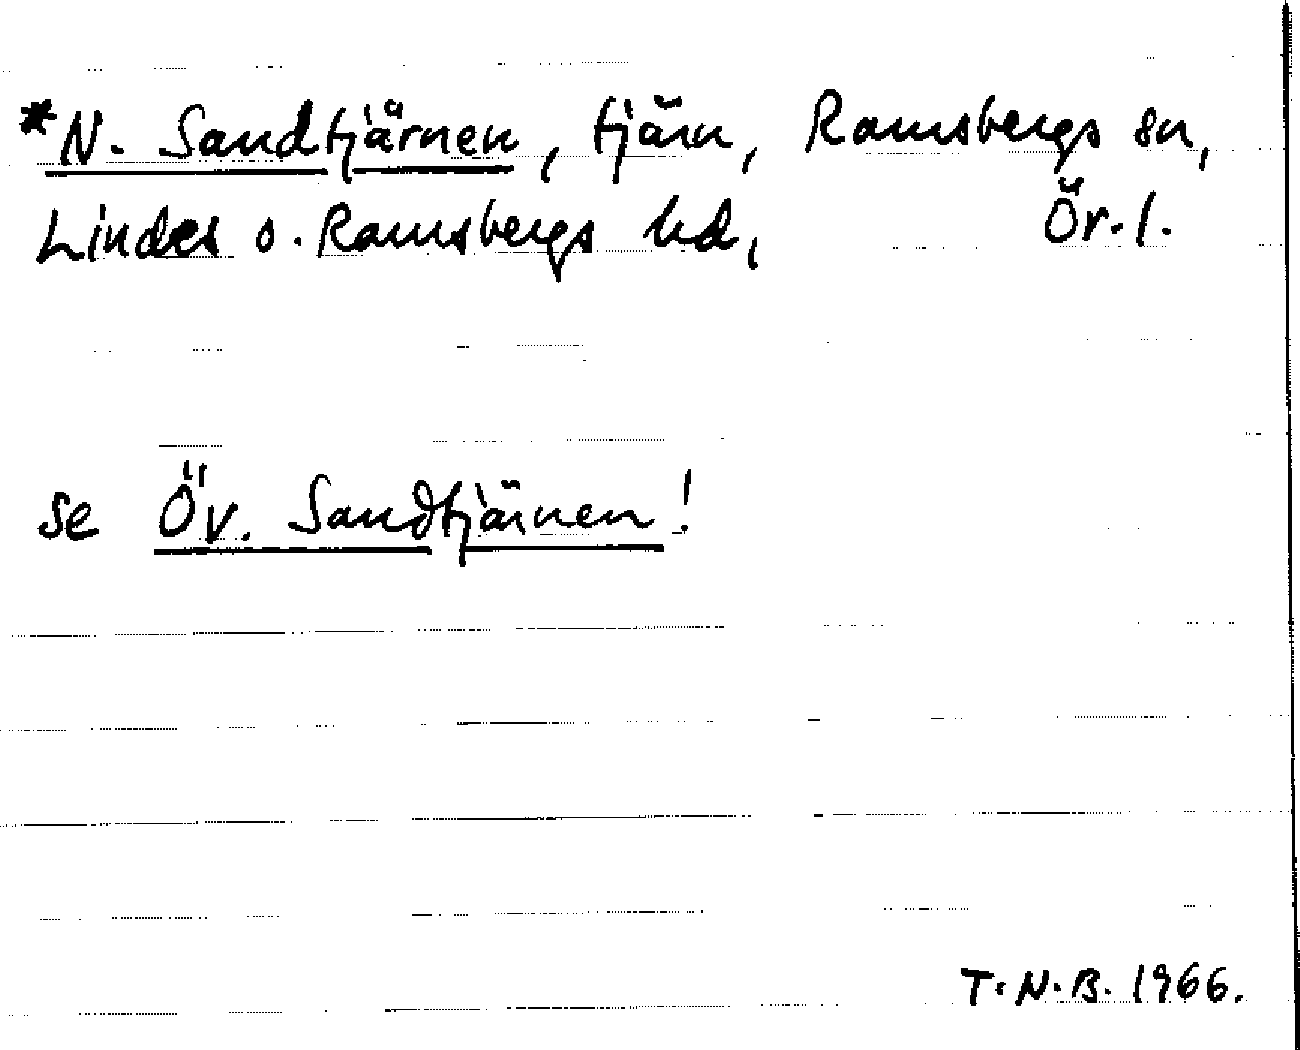 *N. Sandtjärnen, tjärn, Ramsbergs sn,
Lindes o. Ramsbergs hd, Ör. l.
se Öv. Sandtjärnen!
T. N. B. 1966.